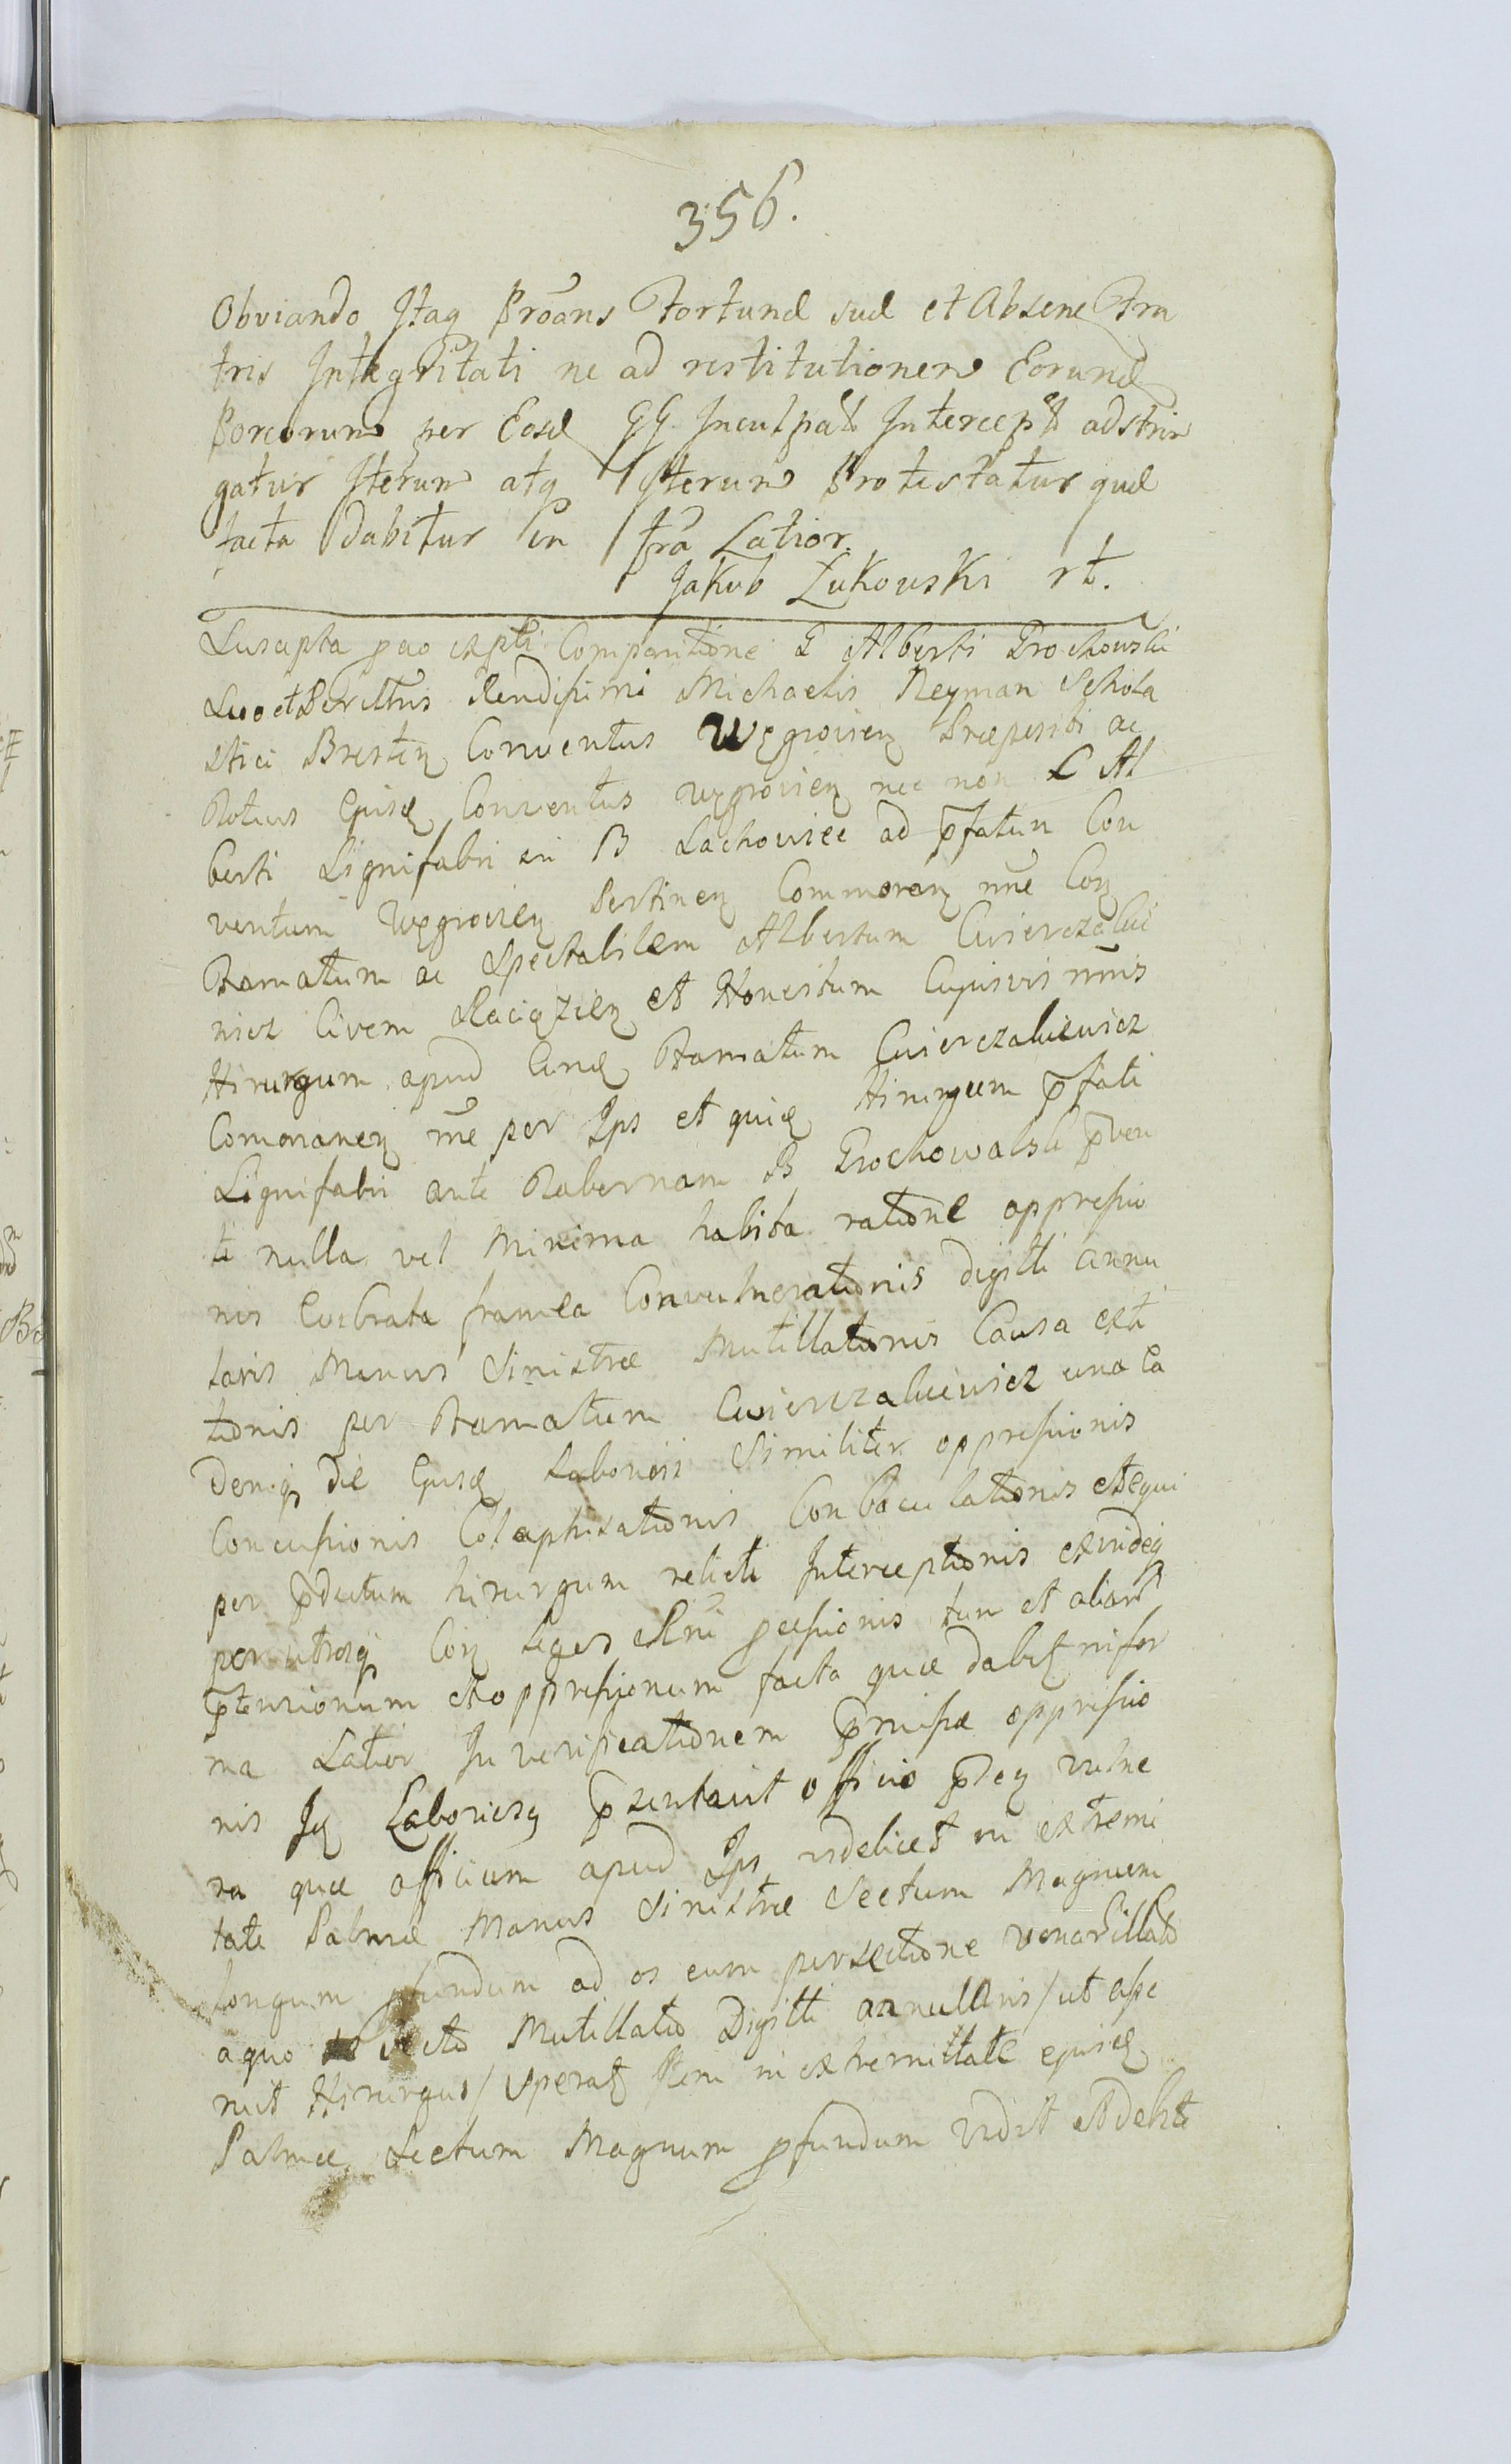 356.
Obviando Itaq Proãns Fortunæ suæ et Absene Fra
tris Integritati ne ad restitutionem Eorund
Porcorum per Eosd GG. Inculpat Intercept adstrin
gatur Iterum atq Iterum Protestatur quæ
facta dabitur in frã Latior.
Jakub Żukowski rt.
Suscepta Comparitione G Alberti Grochowski
Rendissimi Michaelis Neyman Schola
stici Bresten Conventus Węgrovien Præpositi ac
Totius Ejusd Conventus węgrovien nec non L Al
berti Lignifabri in B Lachowice ad p̄fatum Con
ventum Węgrovien Pertinen Commoran nñe Con
Famatum ac Spectabilem Albertum Cwierczakie
wicz Civem Raciązien et Honestum Cujusvis nñis
Hirurgum apud Eund Famatum Cwierczakiewicz
Commoranen rñe per Ips et quid Hirurgum p̄fati
Lignifabri ante Tabernam B Grochowalsk p̄ven
ti nulla vel Minima habita ratione oppressio
nis Evibrata framea Convulnerationis digitti annu
laris Manus Sinistræ Mutillationis Causa exti
tionis per Famatum Cwierczakiewicz una ea
demq die Ejusd Laboriosi Similiter oppressionis
Concussionis Colaphisationis Conbaculationis et equi
per p̄dictum hirurgum relicti Interceptionis exindeq
per utrosq Con leges Rñi gressionis tum et aliar
p̄tensionum et oppressionum facta quæ dabit in for
ma Latior In verificationem p̄missæ oppressio
nis Id Laboriosq p̄sentavit officio p̄den vulne
ra quæ officium apud Ips videlicet in extremi
tate Palmæ Manus Sinistræ Sectum Magnum
longum pfundum ad os cum persectione venar illato
a quo secto Mutillatio Digitti annullaris / ut asse
ruit Hirurgus / Sperat Item in extremittate ejusd
Palmæ Sectum Magnum pfundum vidit